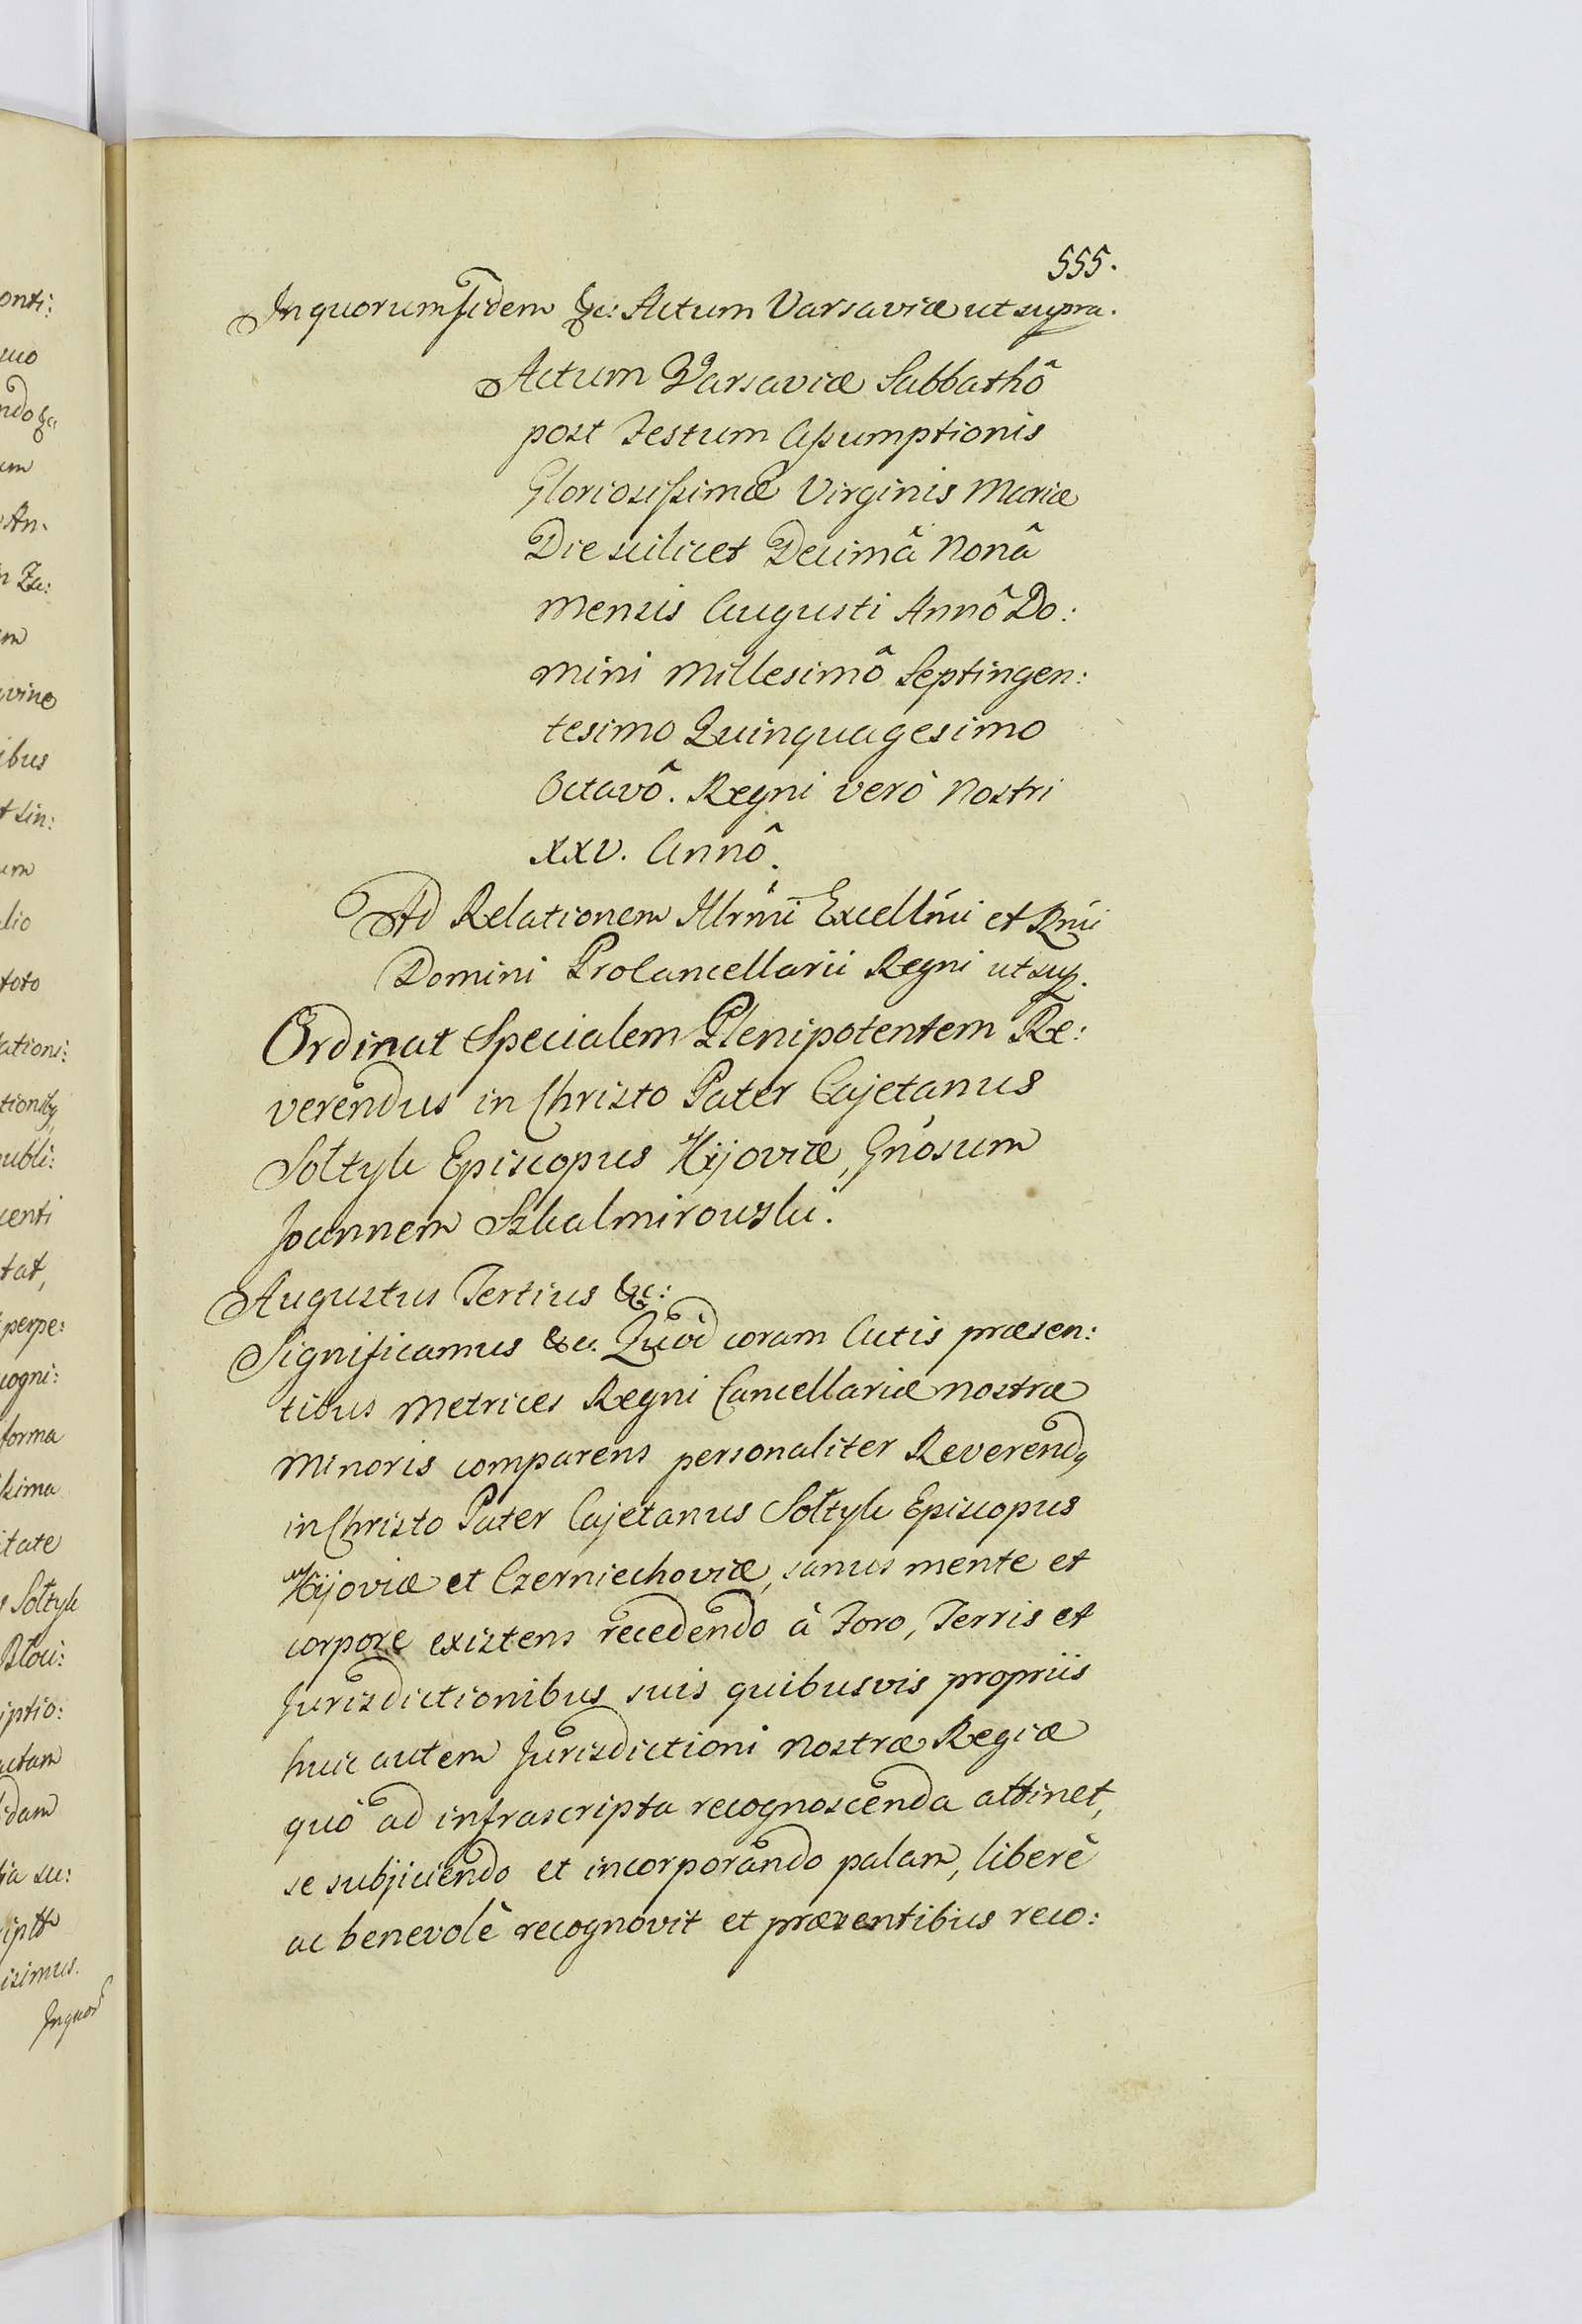 onti:
uo
ndo &c
um
An-
n Za:
m
vine
ibus
t sin:
um
lio
toto
lationi:
tionibq
publi:
centi
tat,
perpe:
cogni:
forma
ssima
itate
s Sołtyk
iptio:
actam
idam
ia su:
isimus.
Inquor
555.
In quorum fidem &c: Actum Varsaviæ ut supra.
Actum Varsaviæ Sabbathô
post Festum Assumptionis
Gloriosissimæ Virginis Mariæ
Die scilicet Decimâ Nonâ
Mensis Augusti Annô Do:
mini Millesimô Septingen:
tesimo Quinquagesimo
Octavô. Regni verò Nostri
XXV. Annô.
Ad Relationem Illrmi Excellmi et Rmi
Domini ProCancellarii Regni ut sup.
Ordinat Specialem Plenipotentem Re:
verendus in Christo Pater Cajetanus
Sołtyk Episcopus Kijoviæ, Gnosum
Joannem Szkalmirowski.
Augustus Tertius &c:
Significamus &c. Quòd coram Actis præsen:
tibus Metrices Regni Cancellariæ nostræ
Minoris comparens personaliter Reverendq
in Christo Pater Cajetanus Sołtyk Episcopus
Kijoviæ et Czerniechoviæ, sanus mente et
corpore existens recedendo à Foro, Terris et
Jurisdictionibus suis quibusvis propriis
huic autem Jurisdictioni Nostræ Regiæ
quô ad infrascripta recognoscenda attinet,
se subjiciendo et incorporando palam, liberè
ac benevolè recognovit et præsentibus reco: